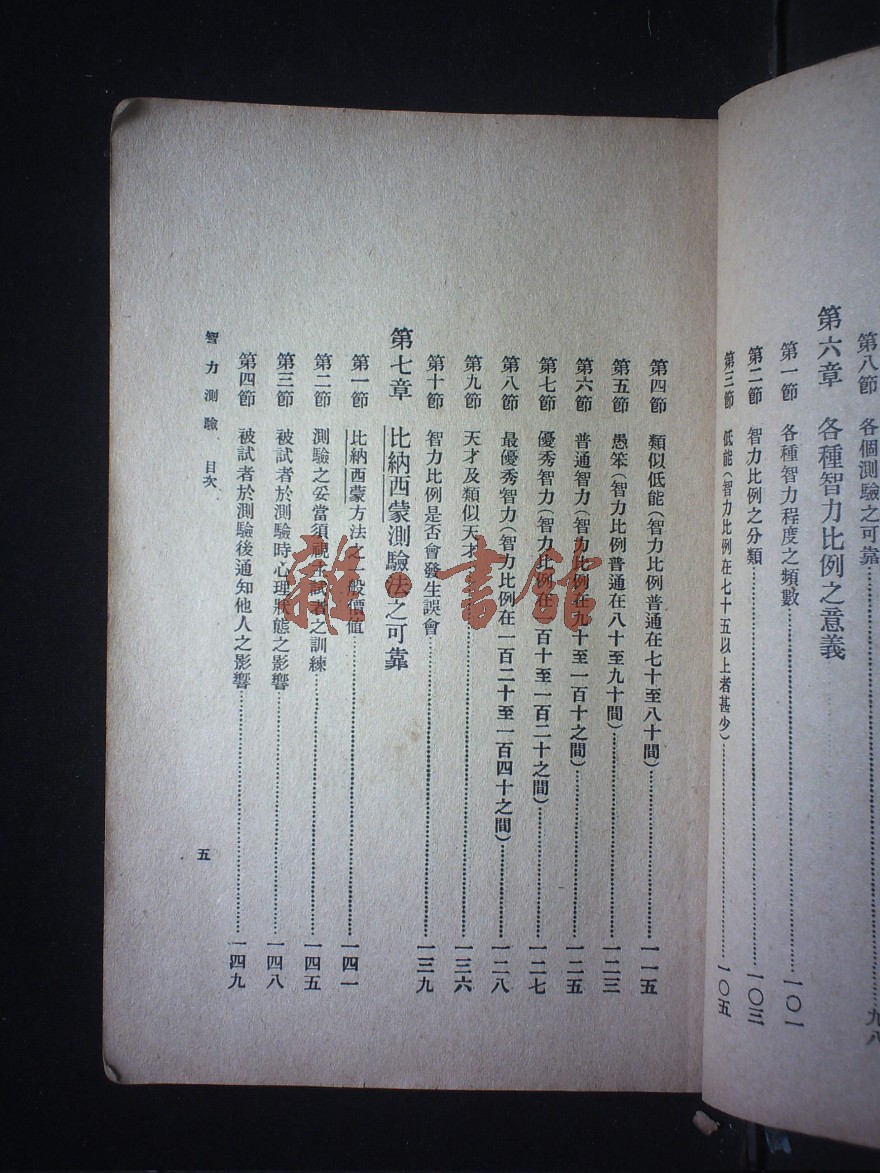 第八節　各個測驗之可靠……九八
第六章　各種智力比例之意義
第一節　各種智力程度之頻數……一〇一
第二節　智力比例之分類……一〇三
第三節　低能(智力比例在七十五以上者甚少)……一〇五
第四節　類似低能(智力比例普通在七十至八十間)……一一五
第五節　愚笨(智力比例普通在八十至九十間)……一二三
第六節　普通智力(智力比例在九十至一百十之間)……一二五
第七節　優秀智力(智力比例在一百十至一百二十之間)……一二七
第八節　最優秀智力(智力比例在一百二十至一百四十之間)……一二八
第九節　天才及類似天才……一三六
第十節　智力比例是否會發生誤會……一三九
第七章　比納西蒙測驗法之可靠
第一節　比納西蒙方法之一般價值……一四一
第二節　測驗之妥當須視主試者之訓練……一四五
第三節　被試者於測驗時心理狀態之影響……一四八
第四節　被試者於測驗後通知他人之影響……一四九
智力測驗　目次
五
雜·書館